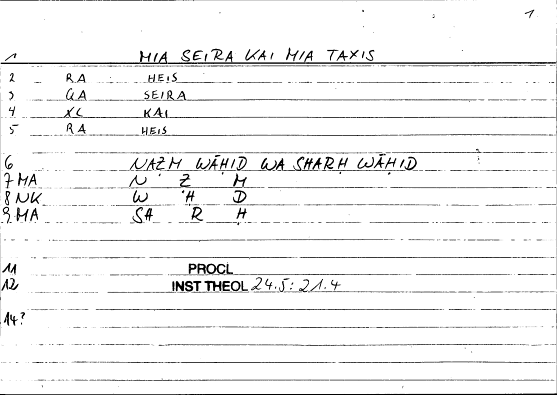 1
1 MIA SEIRA KAI MIA TAXIS
2 RA HEIS
3 QA SEIRA
4 XC KAI
5 RA HEIS
6 NAẒM WĀḤID WA SHARḤ WĀḤID
7 MA N Ẓ M
8 NK W Ḥ D
9 MA SA R Ḥ
11 PROCL
12 INST THEOL 24.5: 21.4
14?